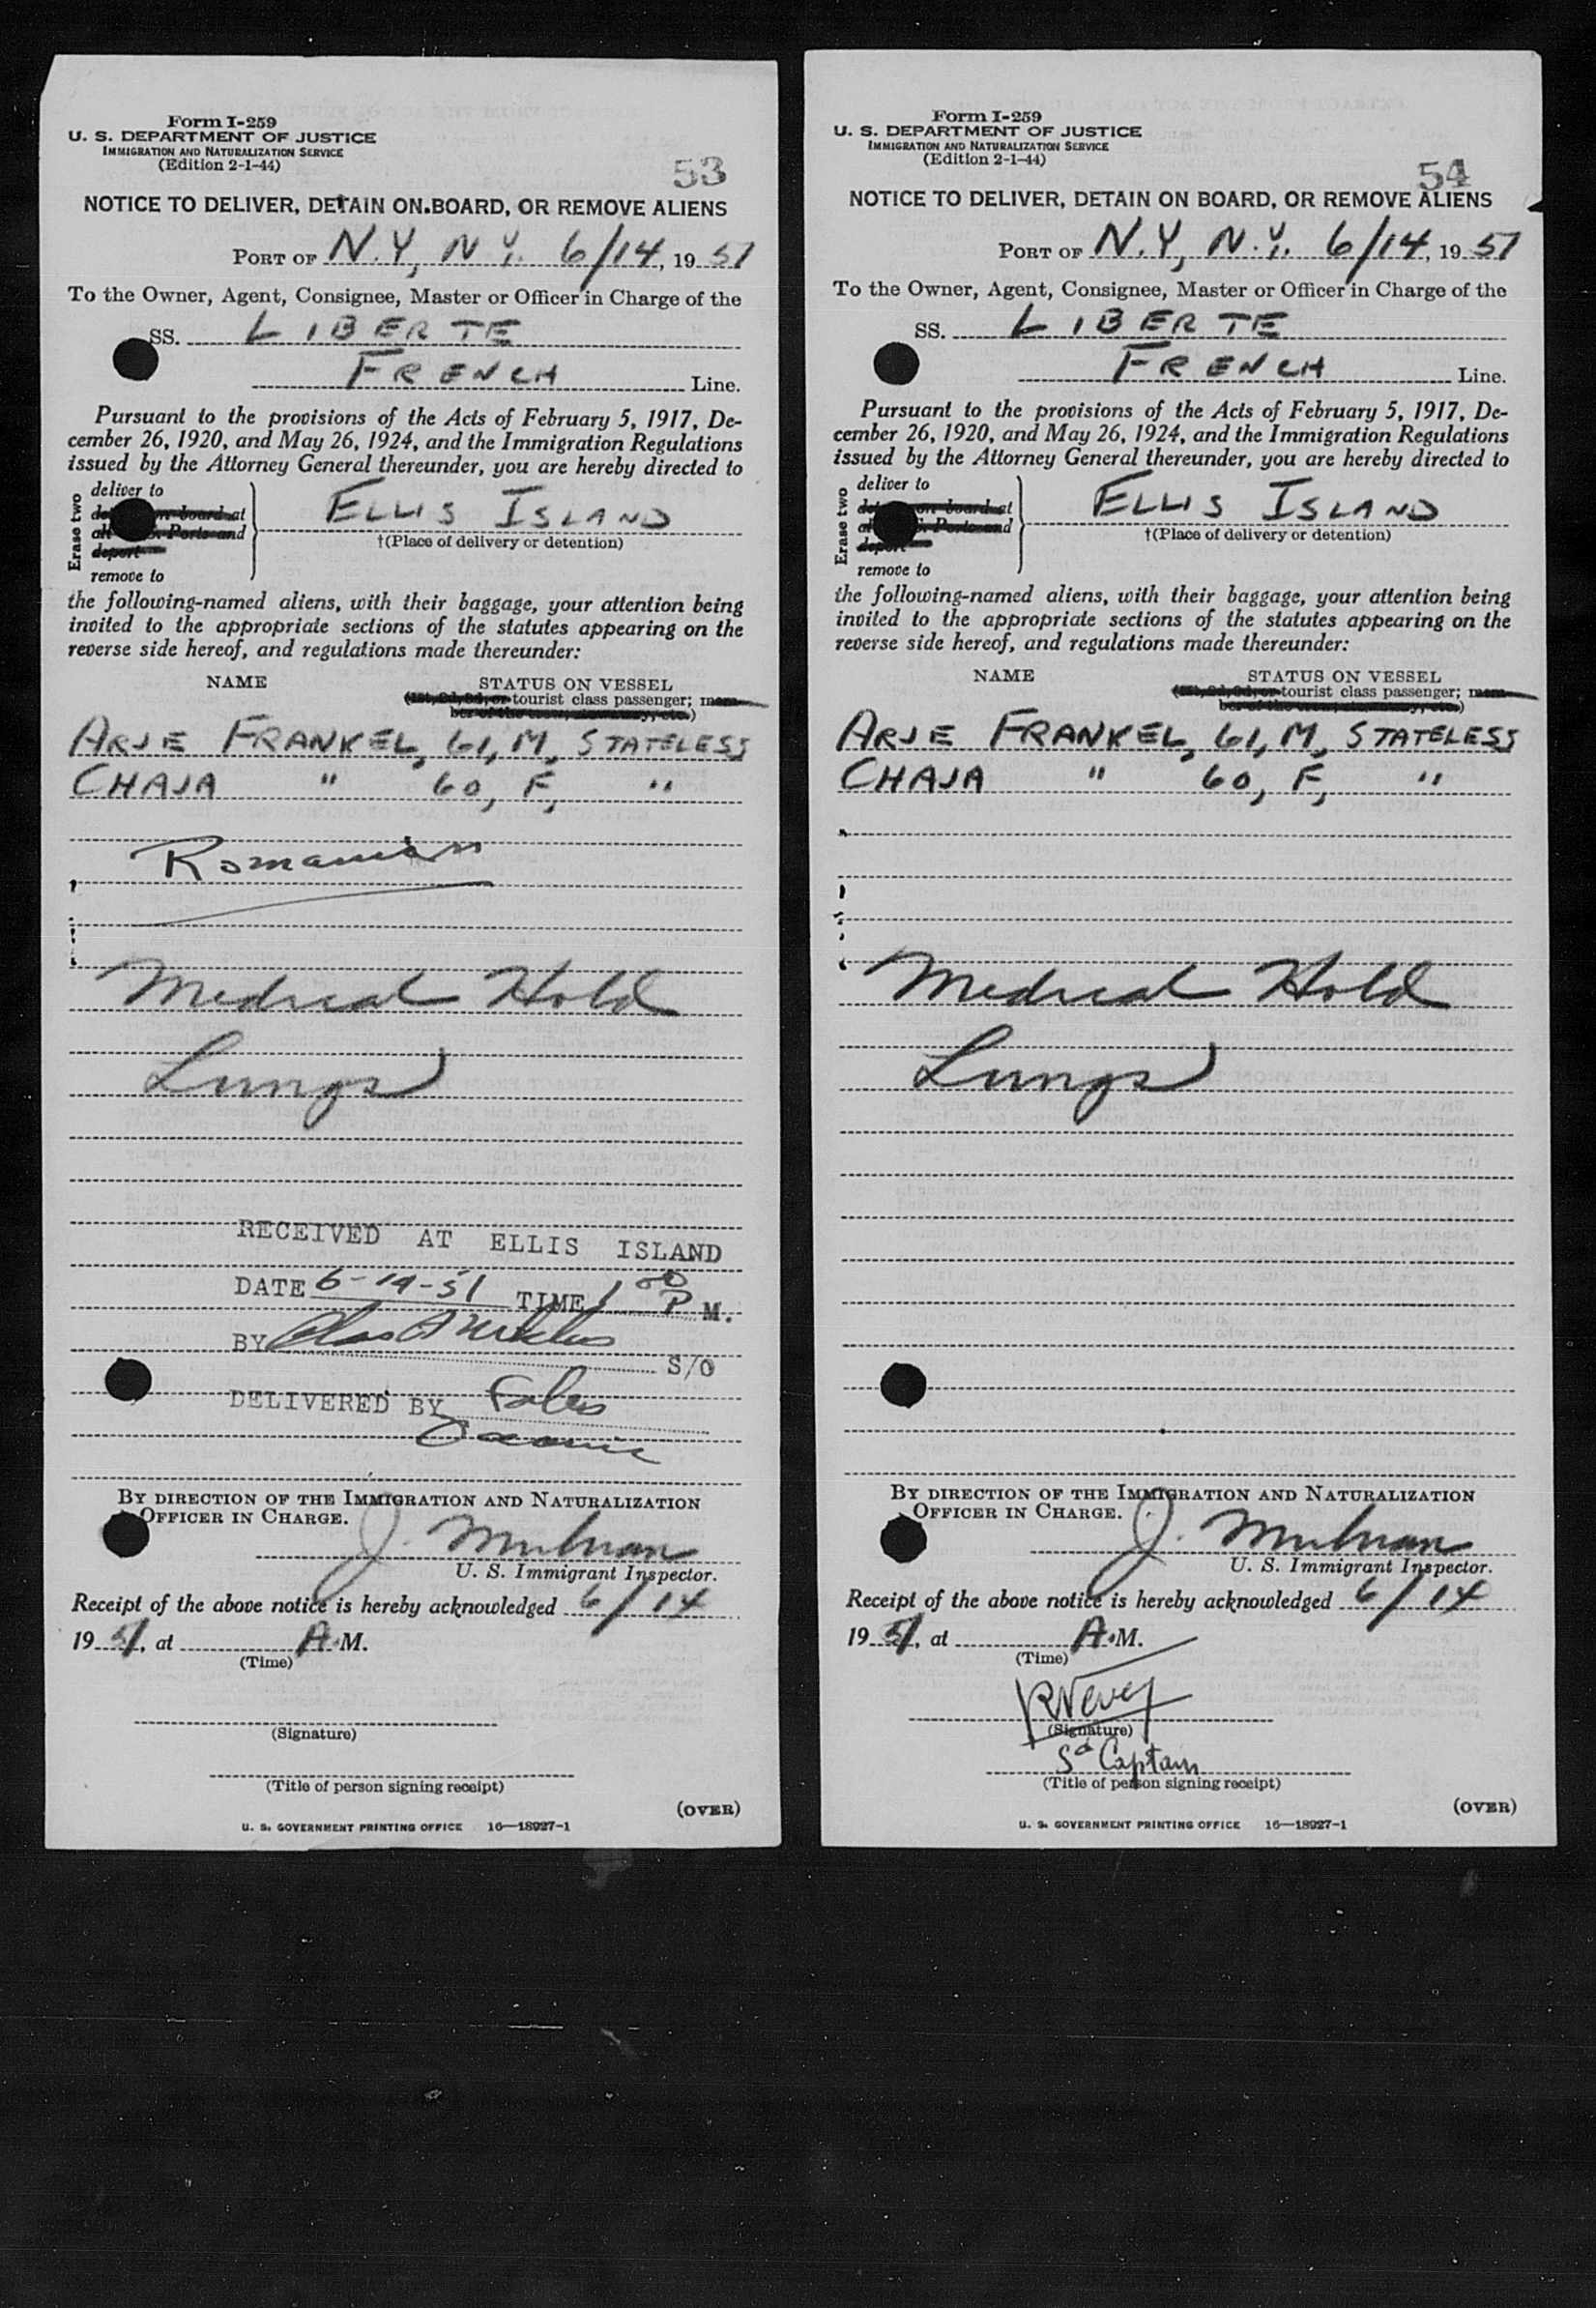 Form I-259
U. S. DEPARTMENT OF JUSTICE
IMMIGRATION AND NATURALIZATION SERVICE
(Edition 2-1-44)
53
NOTICE TO DELIVER, DETAIN ON BOARD, OR REMOVE ALIENS
PORT OF N.Y, N.Y. 6/14, 19 51
To the Owner, Agent, Consignee, Master or Officer in Charge of the
SS. LIBERTE
FRENCH Line.
Pursuant to the provisions of the Acts of February 5, 1917, De-
cember 26, 1920, and May 26, 1924, and the Immigration Regulations
issued by the Attorney General thereunder, you are hereby directed to
Erase two
deliver to
on board at
Ports and
deport
remove to
ELLIS ISLAND
†(Place of delivery or detention)
the following-named aliens, with their baggage, your attention being
invited to the appropriate sections of the statutes appearing on the
reverse side hereof, and regulations made thereunder:
NAME STATUS ON VESSEL
(1st, 2d, 3d, or tourist class passenger; mem-
ber of the crew, stowaway, etc.)
ARJE FRANKEL, 61, M, STATELESS
CHAJA " 60, F, "
Romanian
Medical Hold
Lungs
RECEIVED AT ELLIS ISLAND
DATE 6-14-51 TIME 1 00 P M.
BY S/O
DELIVERED BY
BY DIRECTION OF THE IMMIGRATION AND NATURALIZATION
OFFICER IN CHARGE.
J.
U. S. Immigrant Inspector.
Receipt of the above notice is hereby acknowledged 6/14
19 51, at A.M.
(Time)
(Signature)
(Title of person signing receipt)
(OVER)
U. S. GOVERNMENT PRINTING OFFICE 16—18927-1
Form I-259
U. S. DEPARTMENT OF JUSTICE
IMMIGRATION AND NATURALIZATION SERVICE
(Edition 2-1-44)
54
NOTICE TO DELIVER, DETAIN ON BOARD, OR REMOVE ALIENS
PORT OF N.Y, N.Y. 6/14, 19 51
To the Owner, Agent, Consignee, Master or Officer in Charge of the
SS. LIBERTE
FRENCH Line.
Pursuant to the provisions of the Acts of February 5, 1917, De-
cember 26, 1920, and May 26, 1924, and the Immigration Regulations
issued by the Attorney General thereunder, you are hereby directed to
Erase two
deliver to
on board at
Ports and
deport
remove to
ELLIS ISLAND
†(Place of delivery or detention)
the following-named aliens, with their baggage, your attention being
invited to the appropriate sections of the statutes appearing on the
reverse side hereof, and regulations made thereunder:
NAME STATUS ON VESSEL
(1st, 2d, 3d, or tourist class passenger; mem-
ber of the crew, stowaway, etc.)
ARJE FRANKEL, 61, M, STATELESS
CHAJA " 60, F, "
Medical Hold
Lungs
BY DIRECTION OF THE IMMIGRATION AND NATURALIZATION
OFFICER IN CHARGE.
J.
U. S. Immigrant Inspector.
Receipt of the above notice is hereby acknowledged 6/14
19 51, at A.M.
(Time)
(Signature)
Captain
(Title of person signing receipt)
(OVER)
U. S. GOVERNMENT PRINTING OFFICE 16—18927-1